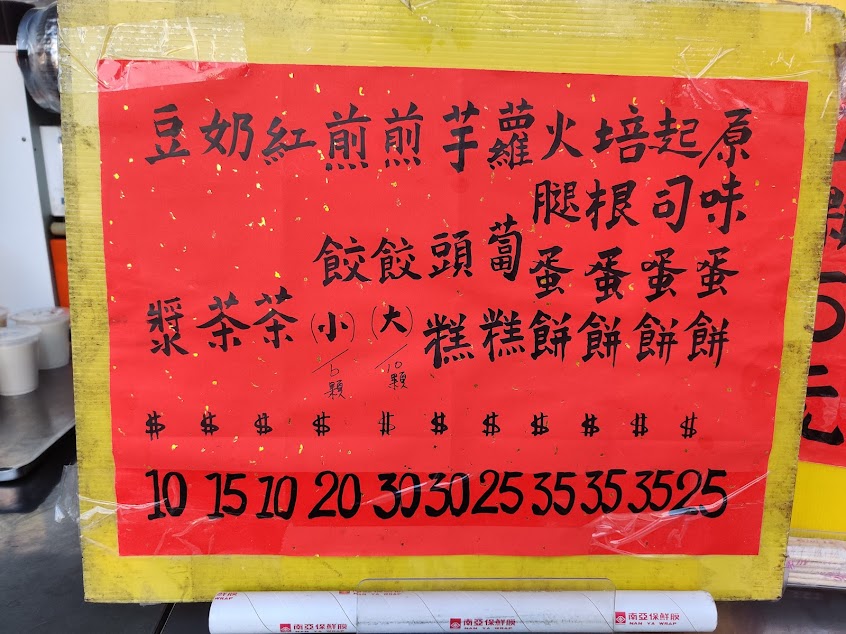 原味蛋餅 $25
起司蛋餅 $35
培根蛋餅 $35
火腿蛋餅 $35
蘿蔔糕 $25
芋頭糕 $30
煎餃(大)/10顆 $30
煎餃(小)/顆 $20
紅茶 $10
奶茶 $15
豆漿 $10
南亞保鮮膜
NAN YA WRAP
南亞保鮮膜
NAN YA WRAP
南亞保鮮膜
NAN YA WRAP